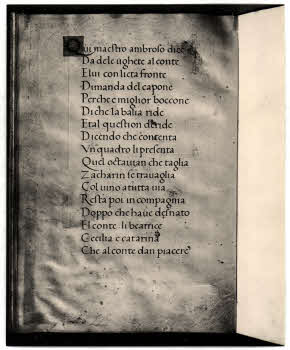 Qui maestro ambroso dice
Da dele ughete al conte
Elui con licta fronte
Dimanda del capone
Perche e miglior boccone
Di che la balia ride
Etal question deride
Dicendo che contenta
Vn quadro li presenta
Quel octauian che taglia
Zacharin se trauaglia
Col uino a tutta uia
Resta poi in compagnia
Doppo che haue desnato
El conte li beatrice
Cecilia e catarina
Che al conte dan piacere